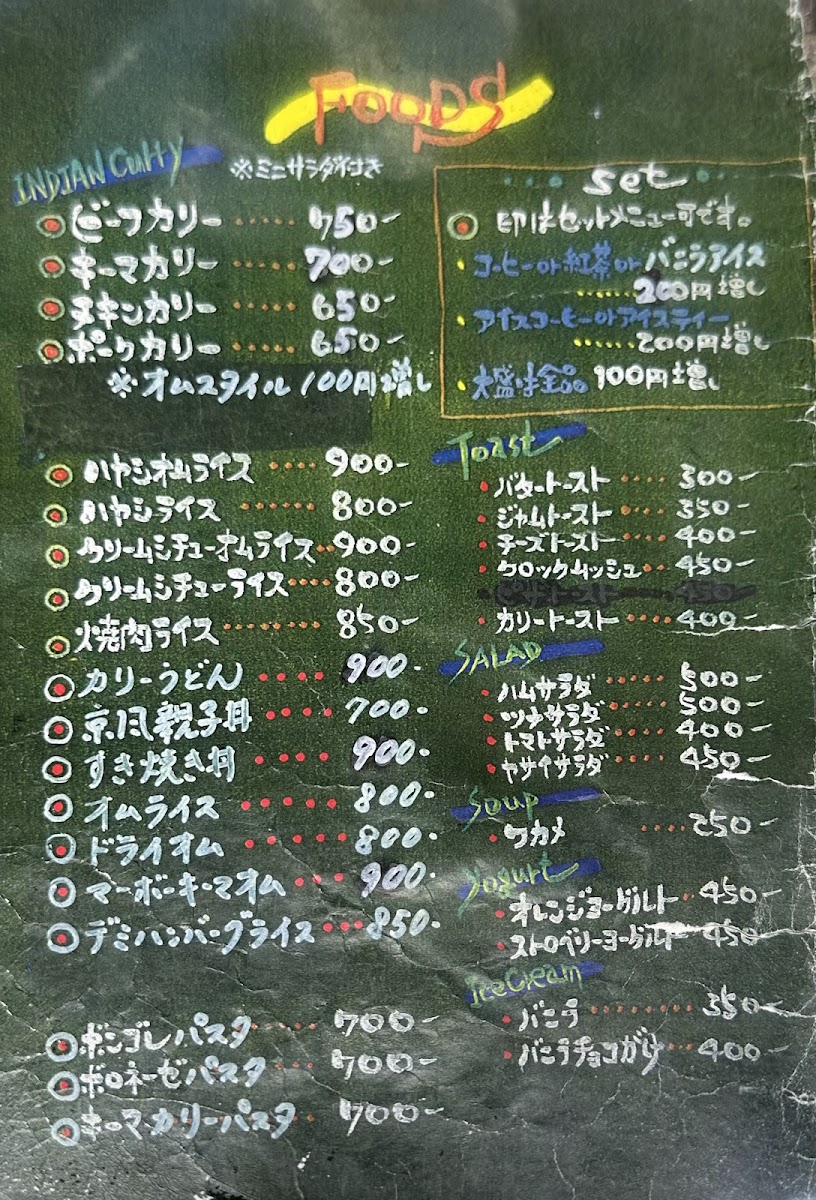 FOODS
INDIAN Curry ※ミニサラダ付き
ビーフカリー ‥‥‥ 750-
キーマカリー ‥‥‥ 700-
チキンカリー ‥‥‥ 650-
ポークカリー ‥‥‥ 650-
※オムスタイル 100円増し
ハヤシオムライス ‥‥ 900-
ハヤシライス ‥‥‥ 800-
クリームシチューオムライス ‥ 900-
クリームシチューライス ‥‥ 800-
焼肉ライス ‥‥‥‥ 850-
カリーうどん ‥‥ 900-
京風親子丼 ‥‥ 700-
すき焼き丼 ‥‥ 900-
オムライス ‥‥‥ 800-
ドライオム ‥‥‥ 800-
マーボーキーマオム ‥‥ 900-
デミハンバーグライス ‥‥ 850-
ボンゴレパスタ ‥‥ 700-
ボロネーゼパスタ ‥‥ 700-
キーマカリーパスタ ‥ 700-
Set
印はセットメニュー可です。
コーヒーor紅茶orバニラアイス
‥‥‥200円増し
アイスコーヒーorアイスティー
‥‥‥200円増し
大盛は全品 100円増し
Toast
バタートースト ‥‥‥ 300-
ジャムトースト ‥‥‥ 350-
チーズトースト ‥‥‥ 400-
クロックムッシュ ‥‥ 450-
ピザトースト 450-
カリートースト ‥‥ 400-
SALAD
ハムサラダ ‥‥‥ 500-
ツナサラダ ‥‥‥ 500-
トマトサラダ ‥‥‥ 400-
ヤサイサラダ ‥‥‥ 450-
Soup
ワカメ ‥‥‥ 250-
Yogurt
オレンジヨーグルト ‥ 450-
ストロベリーヨーグルト 450-
Ice Cream
バニラ ‥‥‥‥ 350-
バニラチョコがけ ‥‥ 400-